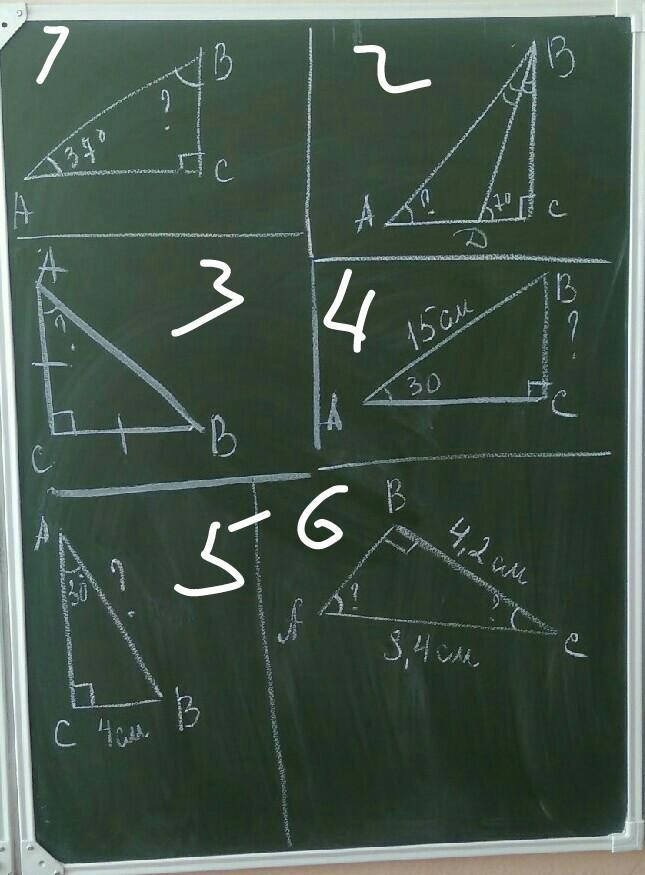 1
B
?
37°
A
C
2
B
A
?
70
C
D
A
3
?
C
B
4
B
15см
?
30
A
C
5
A
30
?
C
4см
B
6
B
4,2см
A
?
?
C
8,4см